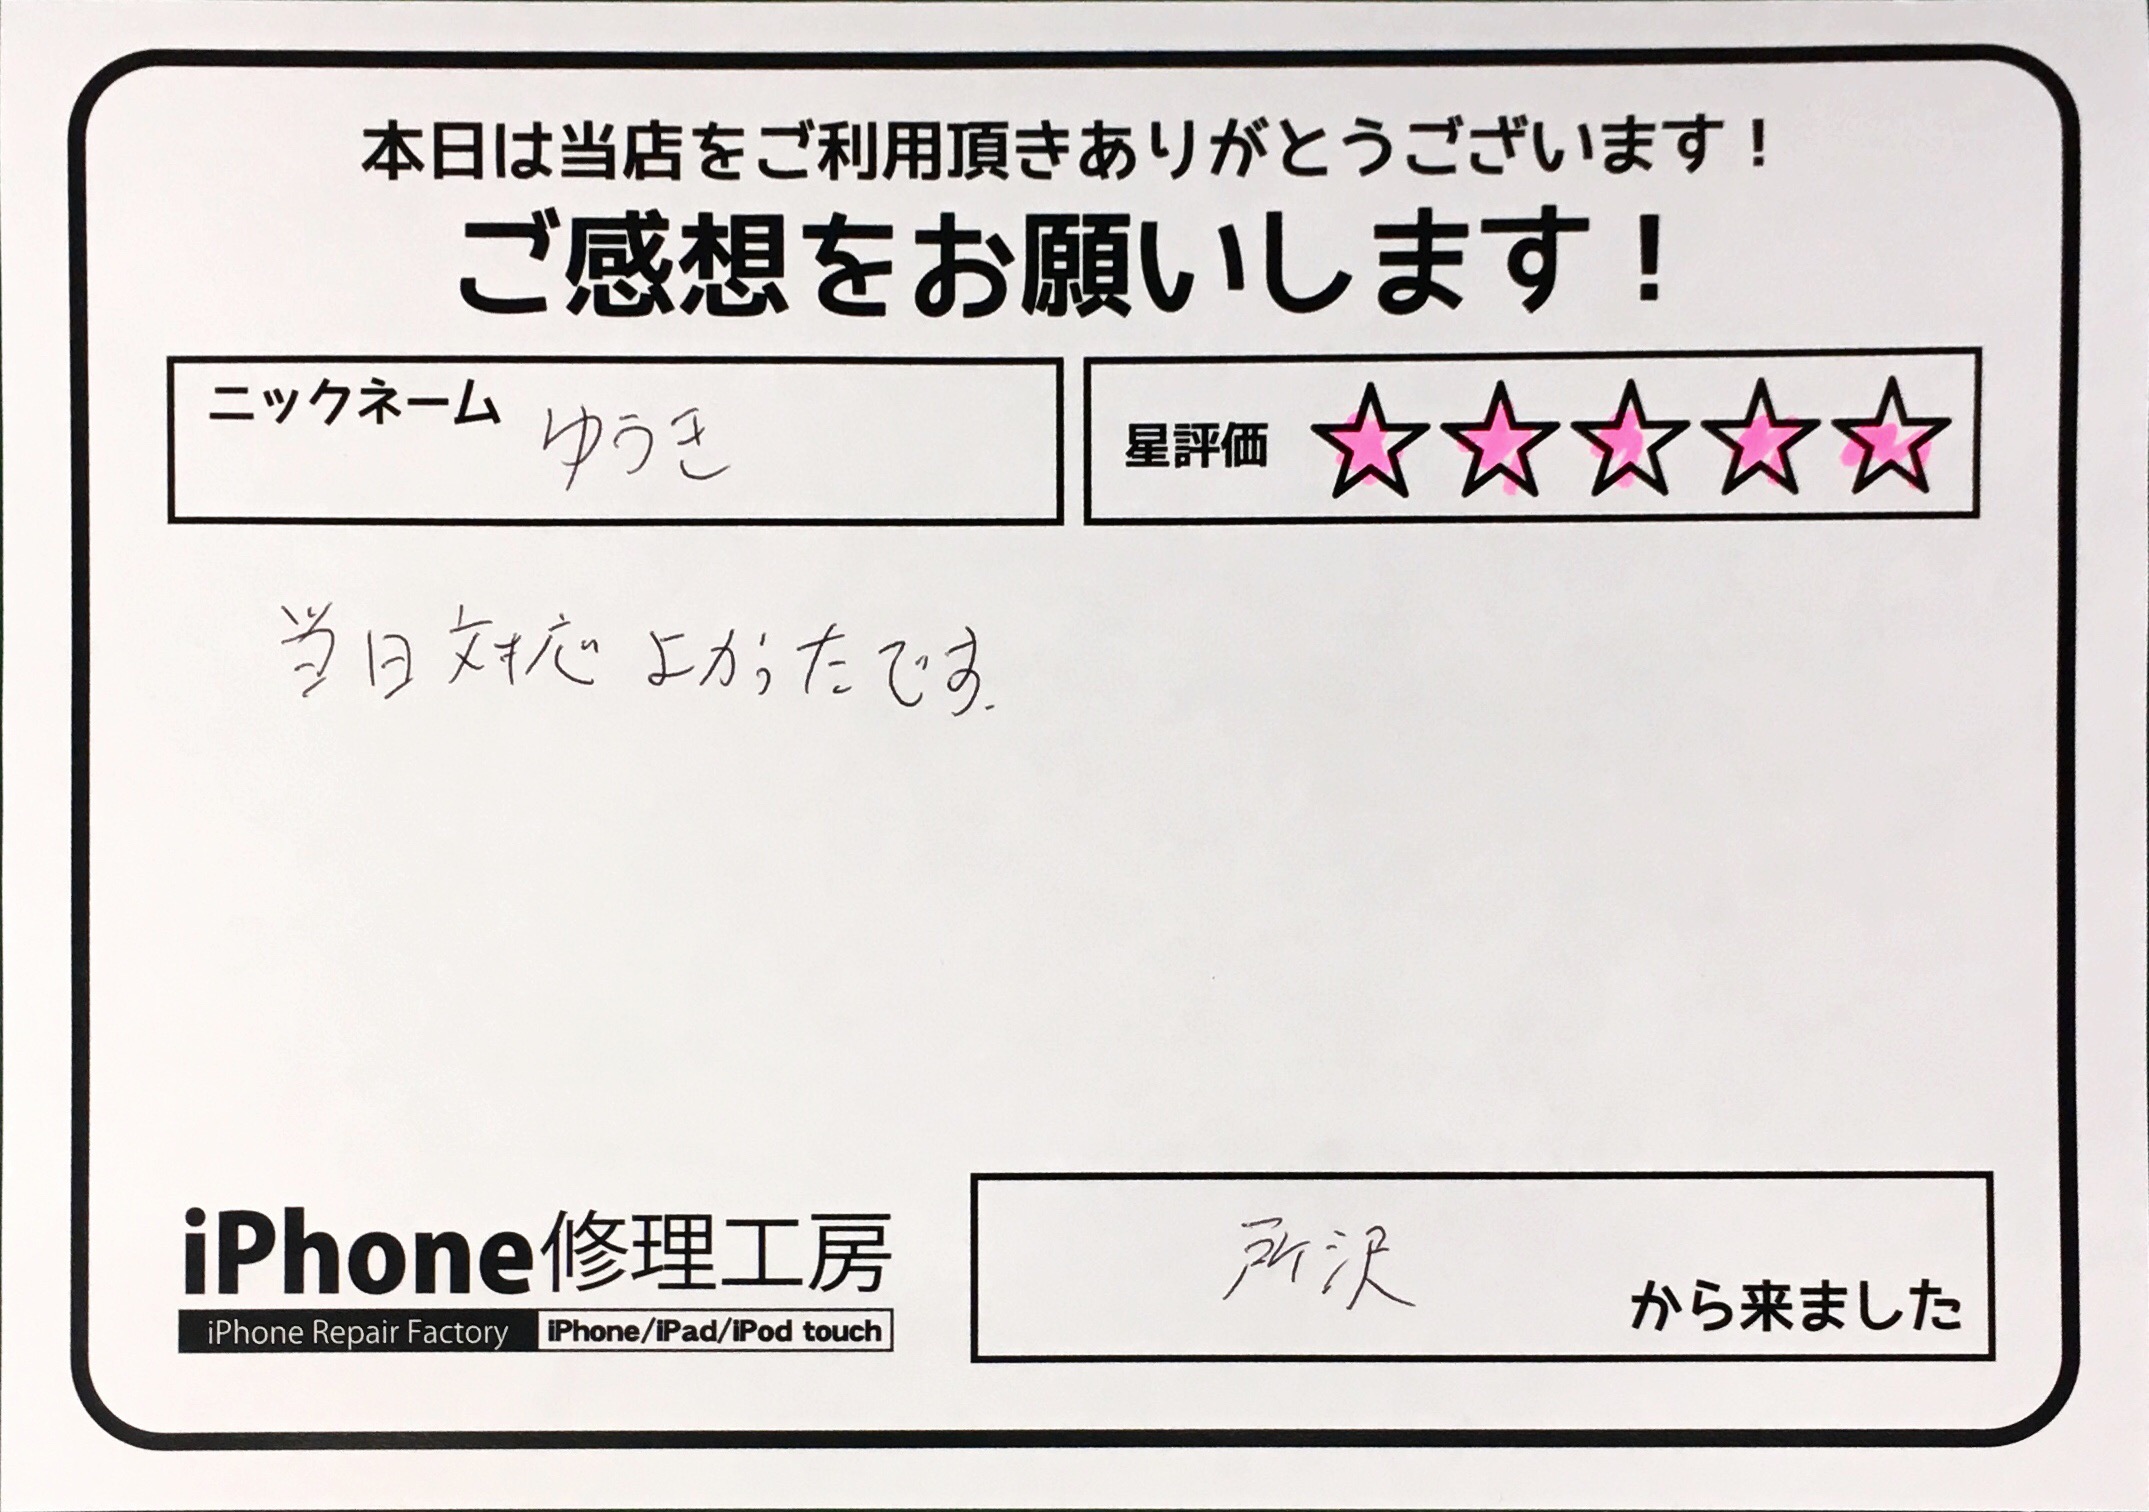 本日は当店をご利用頂きありがとうございます！
ご感想をお願いします！
ニックネーム ゆうき
星評価 ☆☆☆☆☆
当日対応よかったです.
所沢
から来ました
iPhone修理工房
iPhone Repair Factory iPhone/iPad/iPod touch